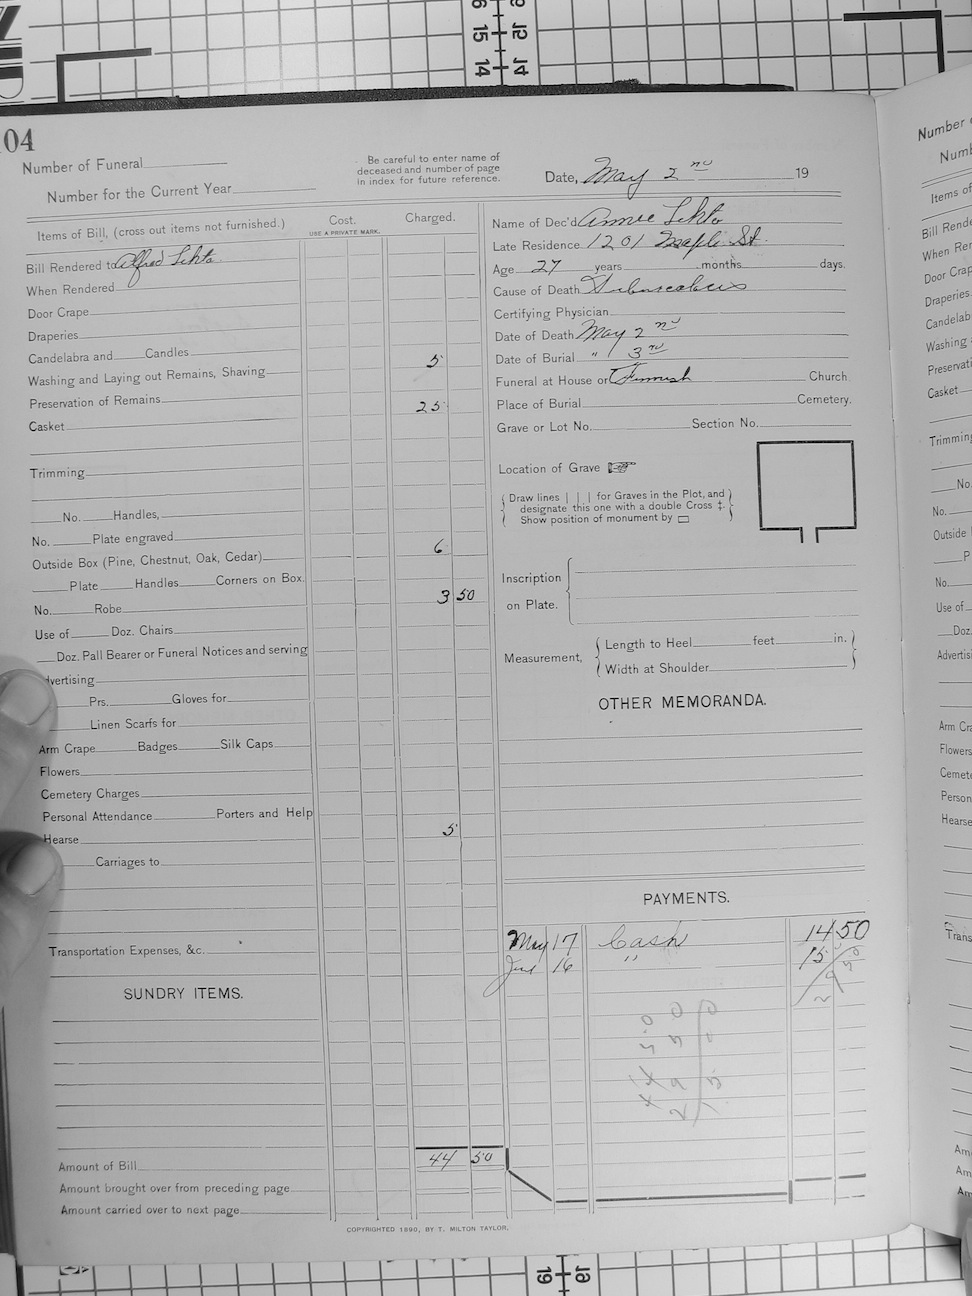 04
Number of Funeral
Number for the Current Year
Be careful to enter name of
deceased and number of page
in index for future reference.
Date, May 2 nd 19
Items of Bill, (cross out items not furnished.) Cost. Charged.
USE A PRIVATE MARK.
Bill Rendered to Alfred Lehto
When Rendered
Door Crape
Draperies
Candelabra and Candles
Washing and Laying out Remains, Shaving 5
Preservation of Remains
Casket 25
Trimming
No. Handles,
No. Plate engraved
Outside Box (Pine, Chestnut, Oak, Cedar) 6
Plate Handles Corners on Box.
No. Robe 3 50
Use of Doz. Chairs
Doz. Pall Bearer or Funeral Notices and serving
dvertising
Prs. Gloves for
Linen Scarfs for
Arm Crape Badges Silk Caps
Flowers
Cemetery Charges
Personal Attendance Porters and Help
Hearse 5
Carriages to
Transportation Expenses, &c.
SUNDRY ITEMS.
Amount of Bill 44 50
Amount brought over from preceding page
Amount carried over to next page
Name of Dec'd Annie Lehto
Late Residence 1201 Maple St.
Age 27 years months days.
Cause of Death Tuberculosis
Certifying Physician
Date of Death May 2 nd
Date of Burial " 3 rd
Funeral at House or Finnish Church
Place of Burial Cemetery.
Grave or Lot No. Section No.
Location of Grave
Draw lines | | | for Graves in the Plot, and
designate this one with a double Cross ‡.
Show position of monument by
Inscription
on Plate.
Measurement, Length to Heel feet in.
Width at Shoulder
OTHER MEMORANDA.
PAYMENTS.
May 17 Cash 14 50
June 16 " 15
COPYRIGHTED 1890, BY T. MILTON TAYLOR.
Number
Numb
Items of
Bill Rende
When Ren
Door Crap
Draperies
Candelab
Washing
Preservati
Casket
Trimming
No.
No.
Outside
P
No.
Use of
Doz.
Advertis
Arm Cra
Flowers
Cemete
Person
Hearse
Trans
Am
Am
Am
15
14
19